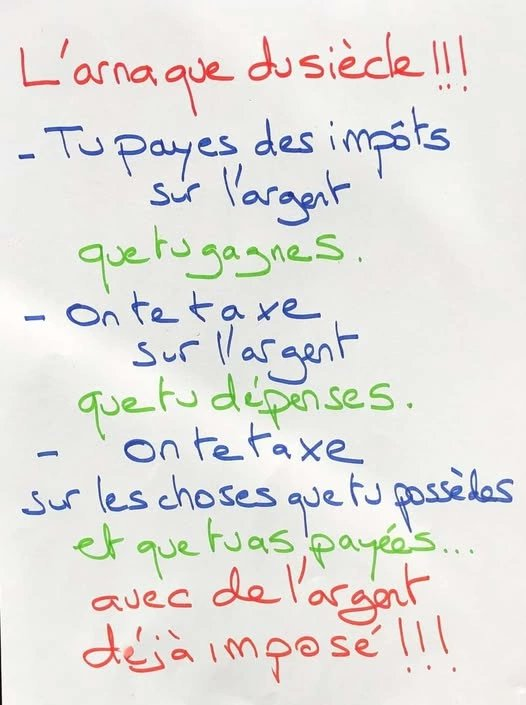 L'arnaque du siècle !!!
- Tu payes des impôts
sur l'argent
que tu gagnes.
- On te taxe
sur l'argent
que tu dépenses.
- On te taxe
sur les choses que tu possèdes
et que tu as payées...
avec de l'argent
déjà imposé !!!